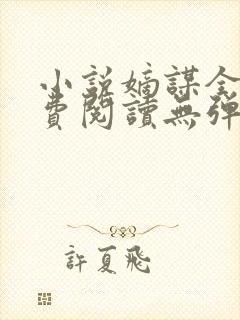 小说嫡謀全
費閱讀無彈
許夏飛